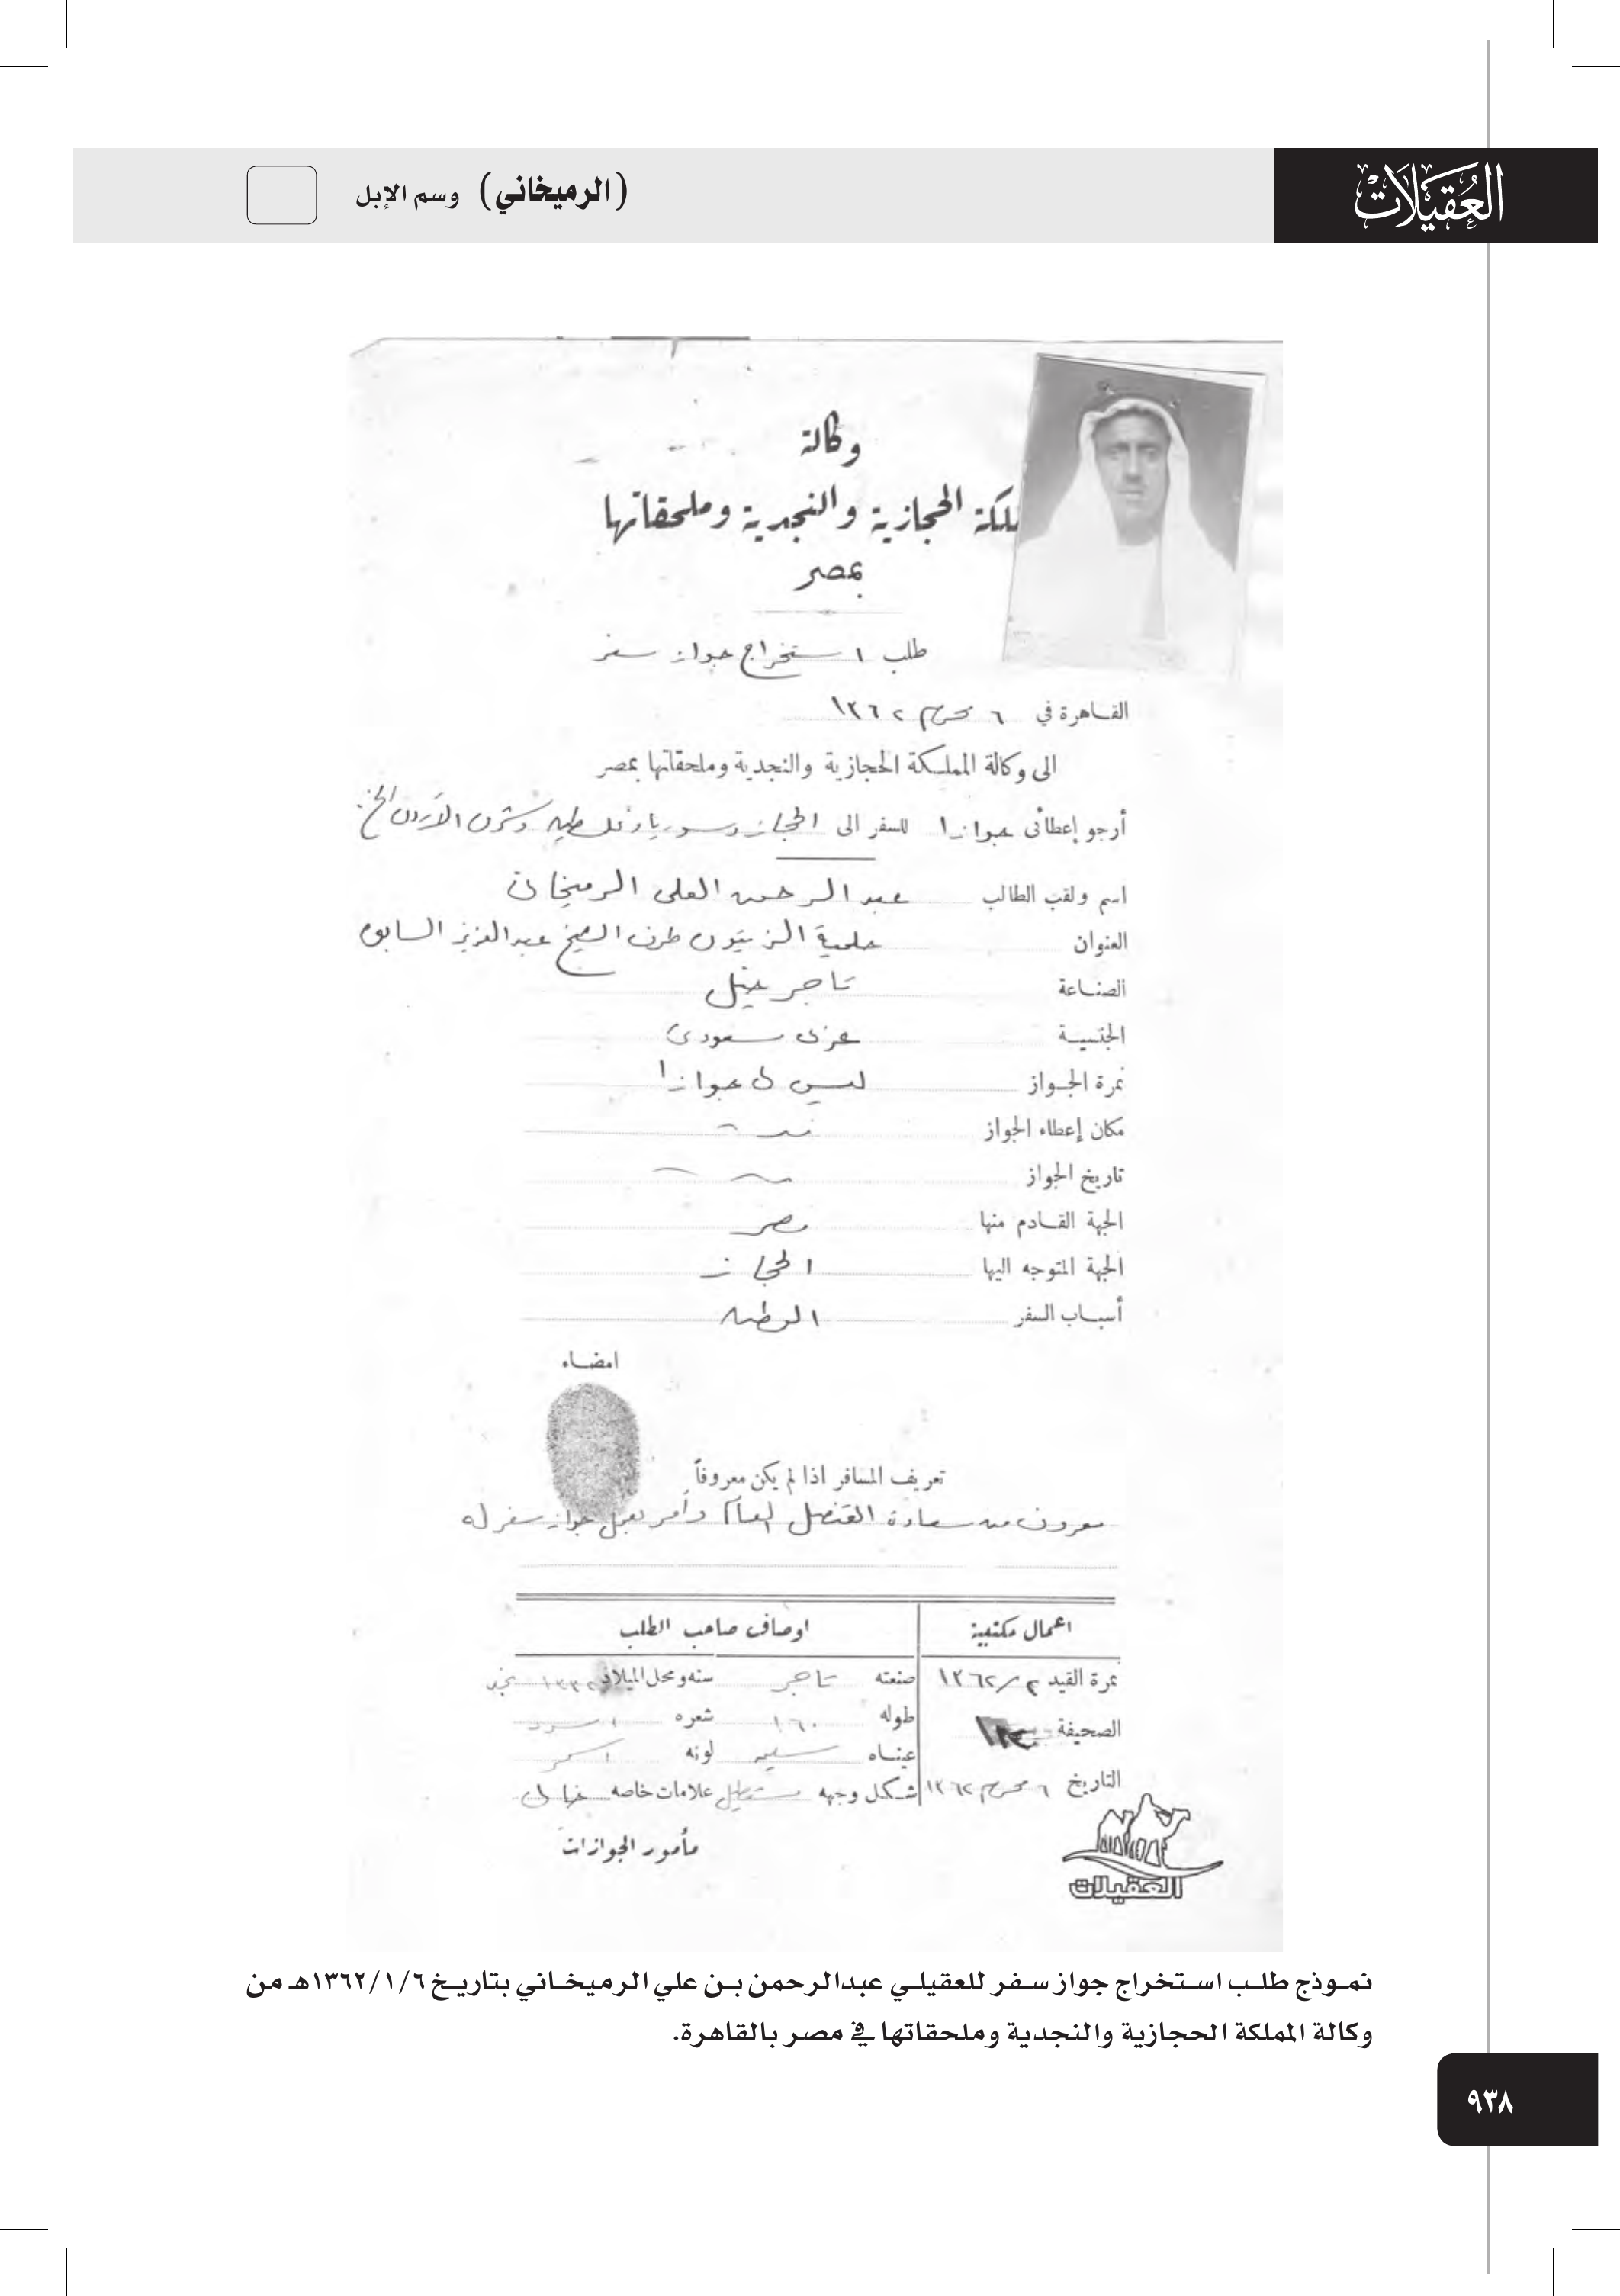 العُقَيْلَات
(الرميخاني) وسم الإبل
وكالة
ملكة الحجازية والنجدية وملحقاتها
بمصر
طلب استخراج جواز سفر
القاهرة في ٦ محرم ١٣٦٢
الى وكالة المملكة الحجازية والنجدية وملحقاتها بمصر
أرجو إعطائى جوازا للسفر الى الحجاز وسوريا وفلسطين وشرق الأردن الخ
اسم ولقب الطالب عبد الرحمن العلى الرميخانى
العنوان حلمية الزيتون طرف الشيخ عبد العزيز السابق
الصناعة تاجر خيل
الجنسية عربى سعودى
نمرة الجواز ليس لى جوازا
مكان إعطاء الجواز
تاريخ الجواز
الجهة القادم منها مصر
الجهة المتوجه اليها الحجاز
أسباب السفر الوطن
امضاء
تعريف المسافر اذا لم يكن معروفاً
معروف من سعادة القنصل العام وأمر بعمل جواز سفر له
اعمال مكتبية
اوصاف صاحب الطلب
نمرة القيد ١٣٦٢/٢ صنعته تاجر سنه ومحل الميلاد نجد
الصحيفة طوله ١٦٠ شعره اسود
عيناه لونه اسمر
التاريخ ٦ محرم ١٣٦٢ شكل وجهه مستطيل علامات خاصه
مأمور الجوازات
العقيلات
نموذج طلب استخراج جواز سفر للعقيلي عبدالرحمن بن علي الرميخاني بتاريخ ١٣٦٢/١/٦هـ من
وكالة المملكة الحجازية والنجدية وملحقاتها في مصر بالقاهرة.
٩٣٨